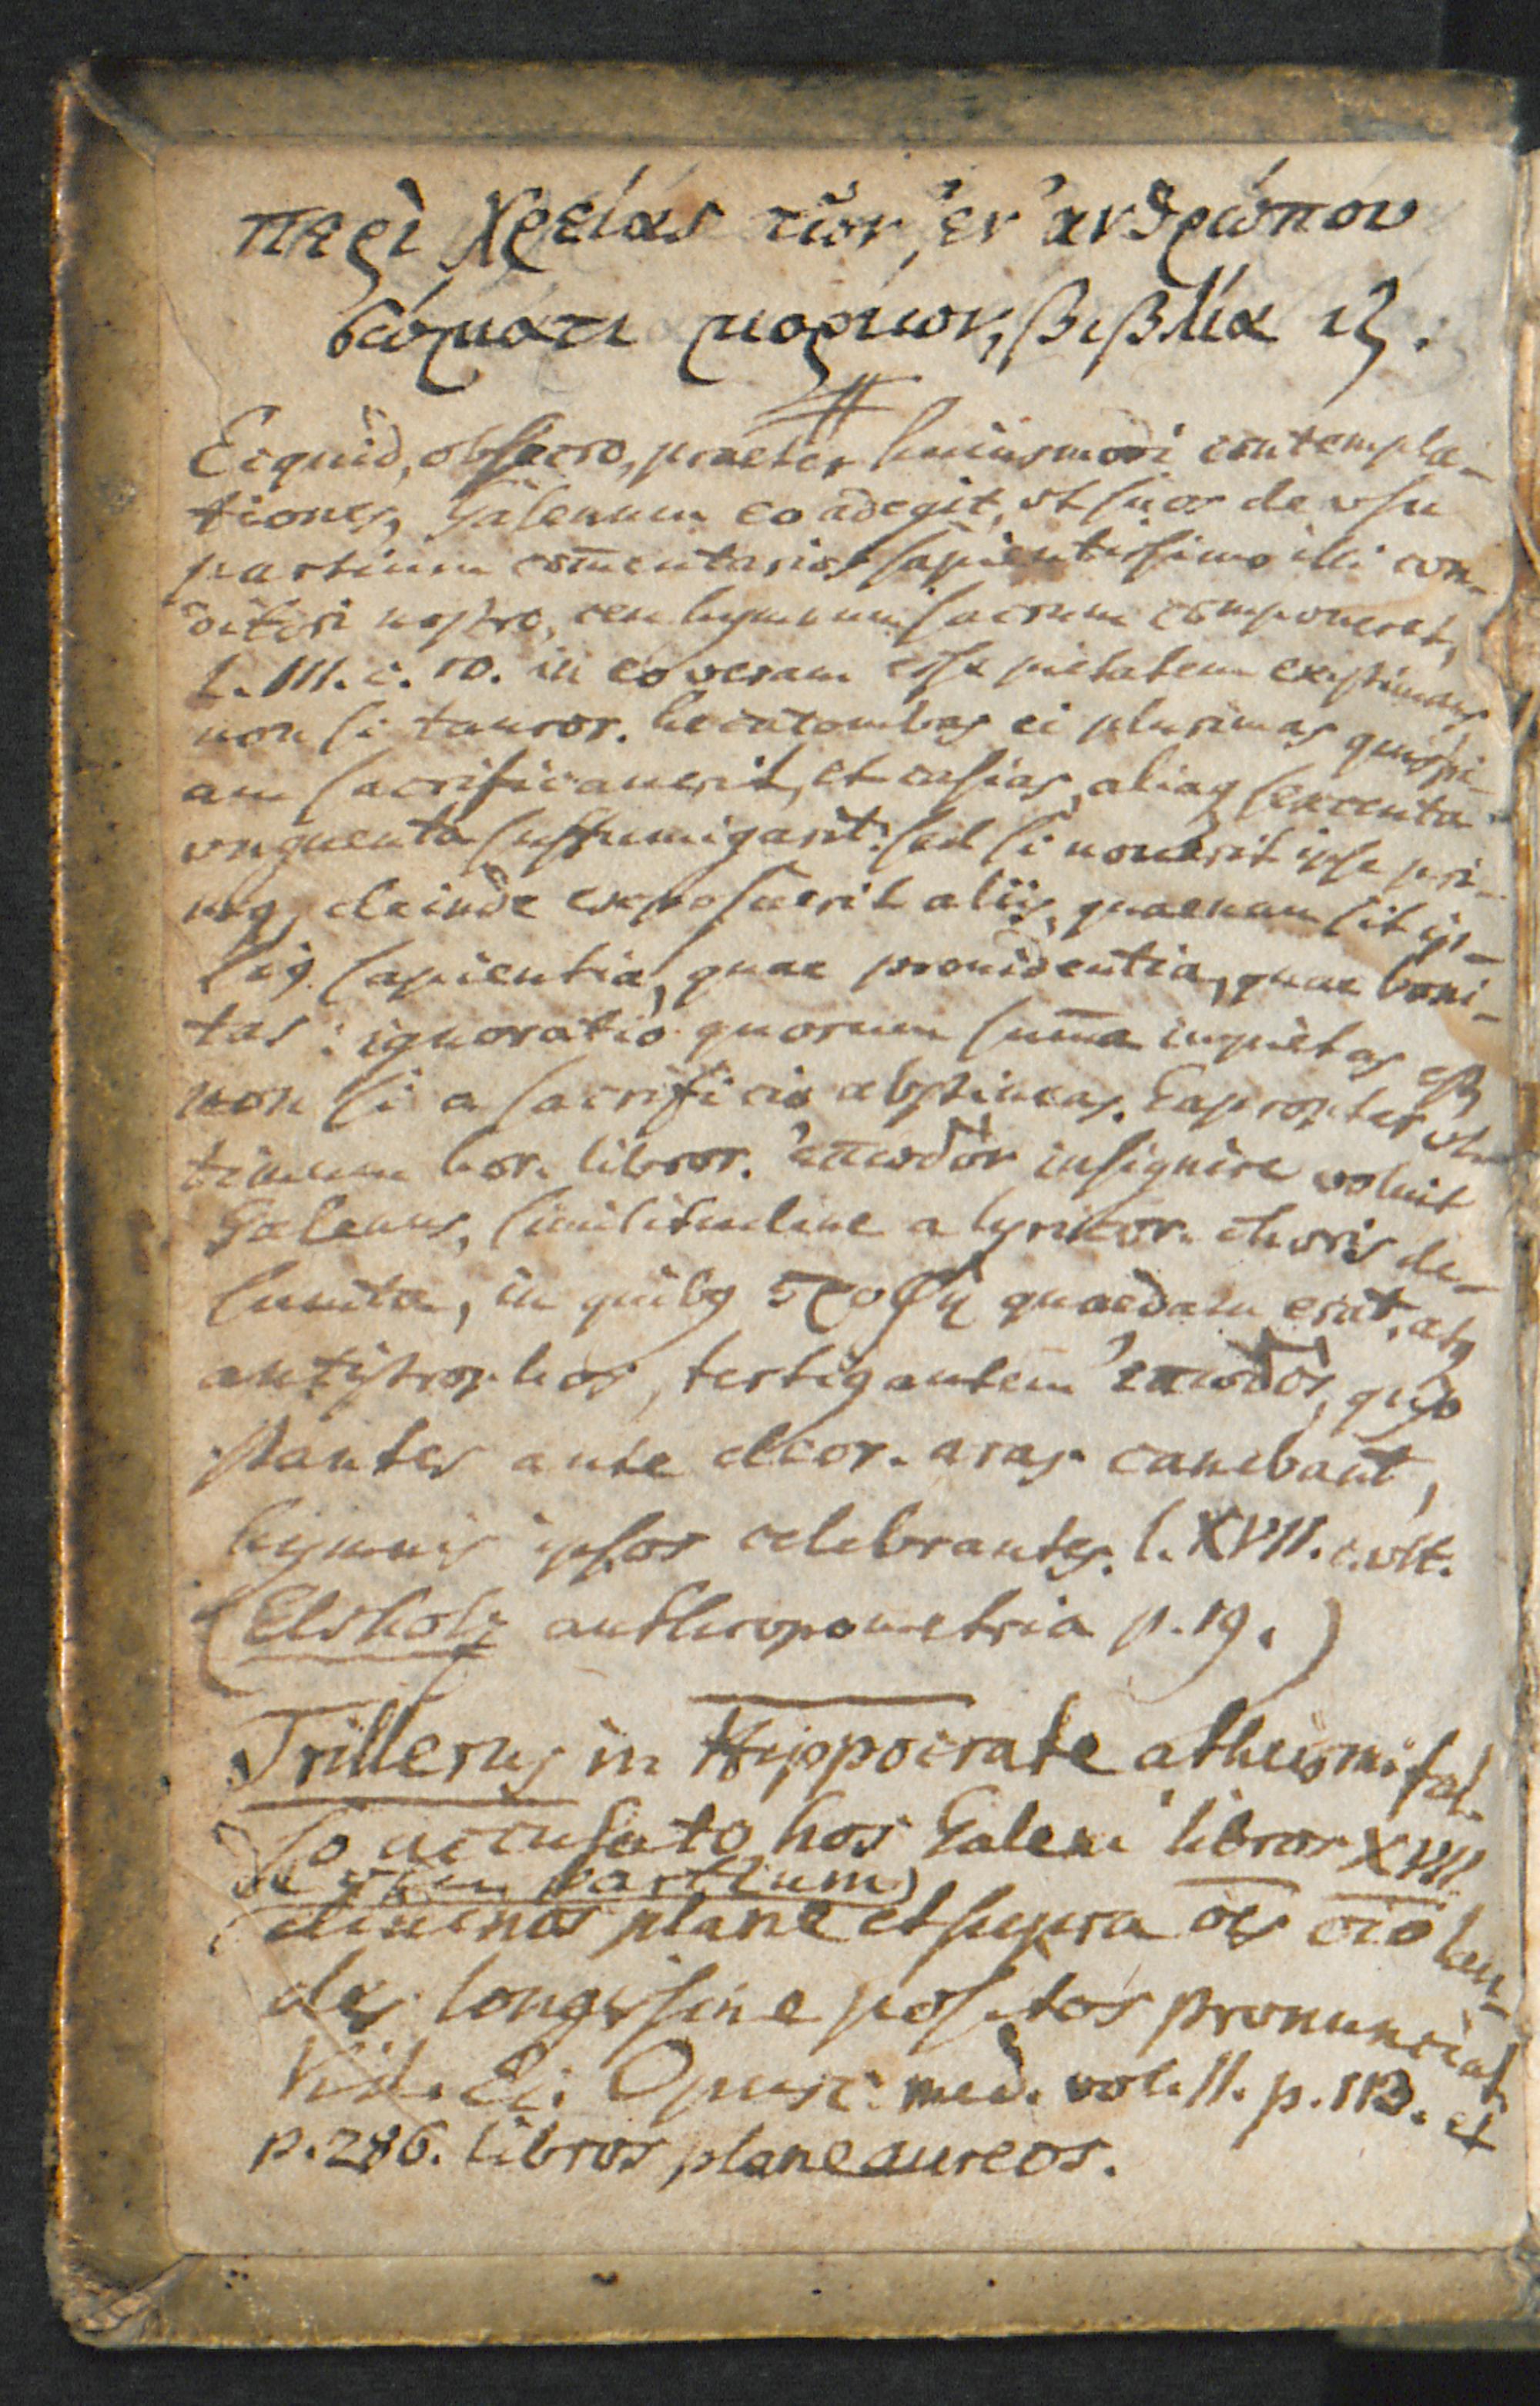 περὶ χρείας τῶν ἐν ἀνθρώπου
σώματι μορίων, βιβλία ιζ.
Ecquid, obsecro, praeter huiusmodi contempla-
tiones, Galenum eo adegit, vt suos de vsu
partium com̄entarios sapientissimo illi con-
ditori nostro, ceu hymnum sacrum componeret,
l. III. c. 10. in eo veram esse pietatem existimans,
non si tauror. hecatombas ei plurimas quispi-
am sacrificauerit, et casias, aliaq sexcenta
vnguenta suffumigarit: sed si nouerit ipse pri-
mq, deinde exposuerit aliis, quaenam sit ip-
siq sapientia, quae prouidentia, quae boni-
tas: ignoratio quorum sum̄a impietas est
non si a sacrificio abstineas. Eapropter vl-
timum hor. libror. ἐπωδὸν insignire voluit
Galenus, similitudine a lyricor. choris de-
sumta, in quibq στροφὴ quaedam erat, atq
antistrophos, tertiq autem ἐπωδὸς, quō
stantes ante deor. aras canebant,
hymnis ipsos celebrantes. l. XVII. c. vlt.
(Elsholz anthropometria p. 19.)
Trillerus in Hippocrate atheismi fal-
so accusato hos Galeni libros XVII
de vsu partium
diuinos plane et supra oēs oīō lau-
des longissime positos pronunciat
Vid. Ei. Opusc. med. vol. II. p. 113. et
p. 286. libros plane aureos.